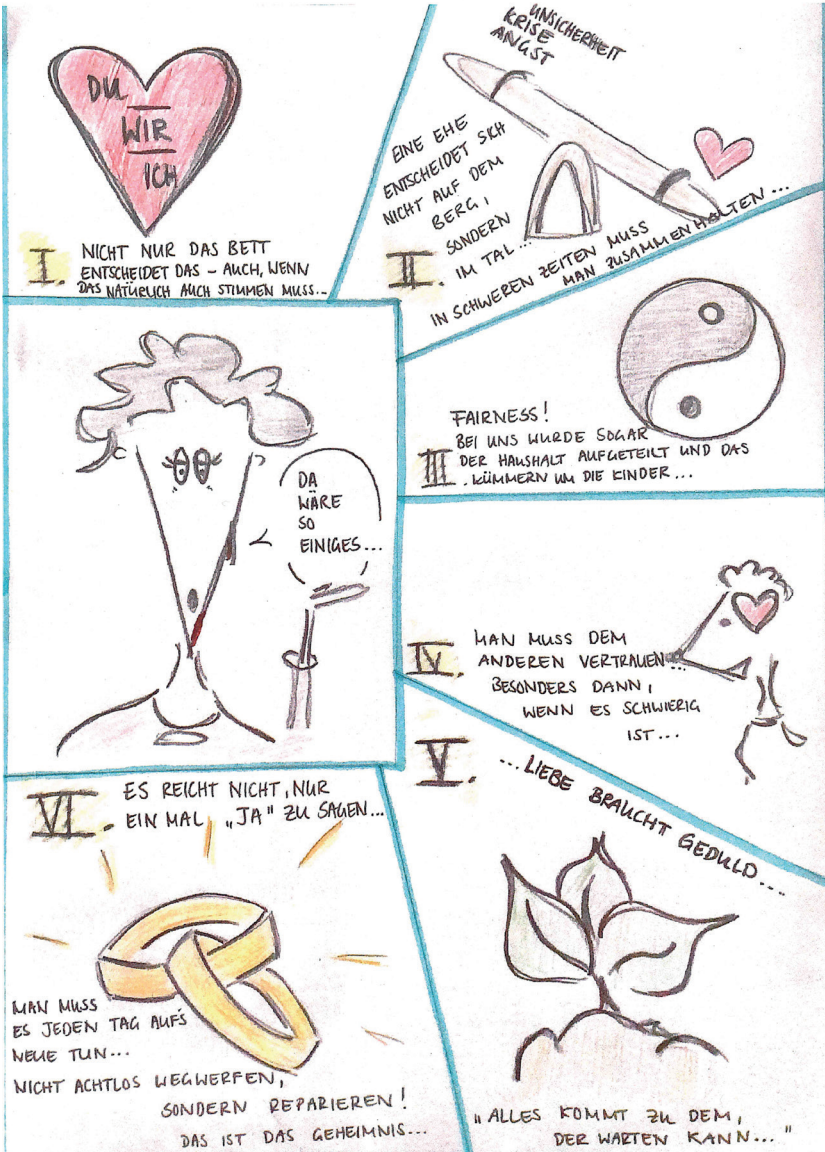 DU
WIR
ICH
I.
NICHT NUR DAS BETT
ENTSCHEIDET DAS – AUCH, WENN
DAS NATÜRLICH AUCH STIMMEN MUSS...
UNSICHERHEIT
KRISE
ANGST
EINE EHE
ENTSCHEIDET SICH
NICHT AUF DEM
BERG,
SONDERN
IM TAL...
II.
IN SCHWEREN ZEITEN MUSS
MAN ZUSAMMENHALTEN...
FAIRNESS!
III.
BEI UNS WURDE SOGAR
DER HAUSHALT AUFGETEILT UND DAS
KÜMMERN UM DIE KINDER...
DA
WÄRE
SO
EINIGES...
IV.
MAN MUSS DEM
ANDEREN VERTRAUEN...
BESONDERS DANN,
WENN ES SCHWIERIG
IST...
V.
...LIEBE BRAUCHT GEDULD...
„ALLES KOMMT ZU DEM,
DER WARTEN KANN..."
VI.
ES REICHT NICHT, NUR
EIN MAL „JA" ZU SAGEN...
MAN MUSS
ES JEDEN TAG AUF'S
NEUE TUN...
NICHT ACHTLOS WEGWERFEN,
SONDERN REPARIEREN!
DAS IST DAS GEHEIMNIS...